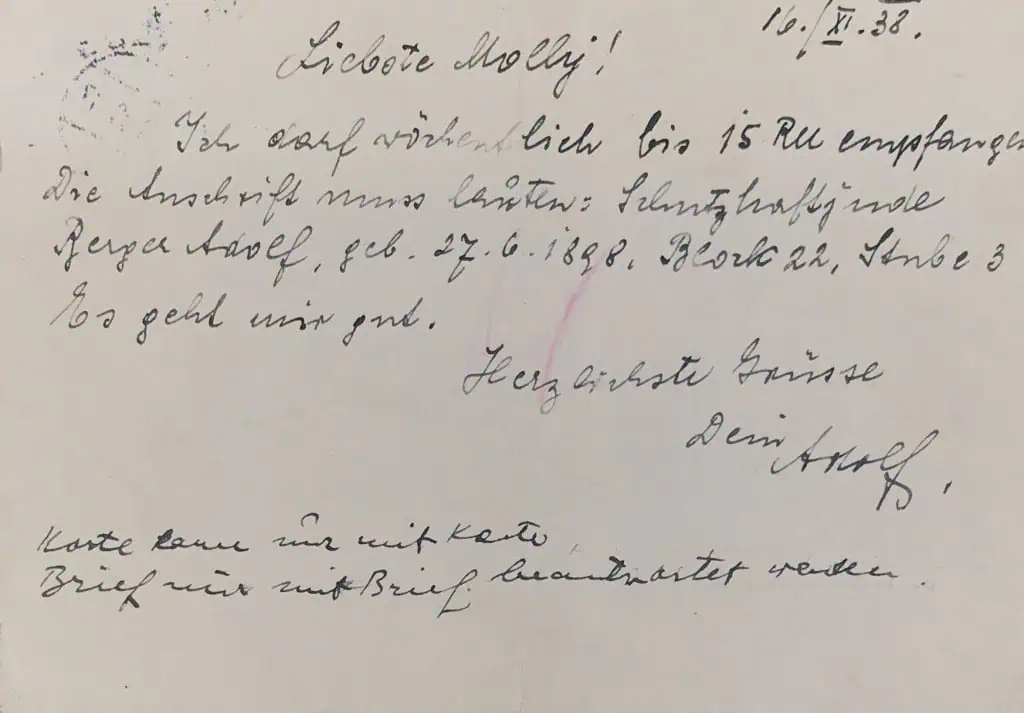 16./XI.38.
Liebste Molly!
Ich darf wöchentlich bis 15 RM empfangen
Die Anschrift muss lauten: Schutzhaftjude
Berger Adolf, geb. 27.6.1898, Block 22, Stube 3
Es geht mir gut.
Herzlichste Grüsse
Dein
Adolf,
Karte kann nur mit Karte,
Brief nur mit Brief beantwortet werden.